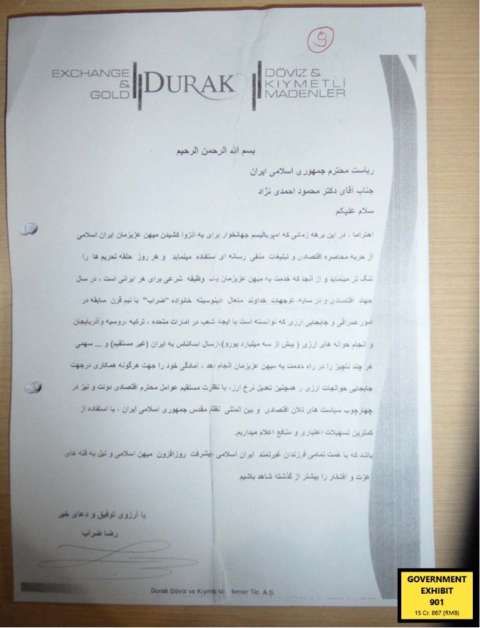 9
EXCHANGE & GOLD
DURAK
DÖVİZ & KIYMETLİ MADENLER
بسم الله الرحمن الرحیم
ریاست محترم جمهوری اسلامی ایران
جناب آقای دکتر محمود احمدی نژاد
سلام علیکم
احتراما ، در این برهه زمانی که امپریالیسم جهانخوار برای به انزوا کشیدن میهن عزیزمان ایران اسلامی
از حربه محاصره اقتصادی و تبلیغات منفی رسانه ای استفاده مینماید و هر روز حلقه تحریم ها را
تنگ تر مینماید و از آنجا که خدمت به میهن عزیزمان وظیفه شرعی برای هر ایرانی است ، در سال
جهاد اقتصادی و در سایه توجهات خداوند متعال خانواده "ضراب" با نیم قرن سابقه در
امور صرافی و جابجایی ارزی که توانسته است با ایجاد شعب در امارات متحده ، ترکیه ،روسیه وآذربایجان
و انجام حواله های ارزی ( بیش از سه میلیارد یورو) ارسال اسکناس به ایران (غیر مستقیم) و ... سهمی
هر چند ناچیز را در راه خدمت به میهن عزیزمان انجام دهد ، آمادگی خود را جهت هرگونه همکاری درجهت
جابجایی حوالجات ارزی و همچنین تعدیل نرخ ارز، با نظارت مستقیم عوامل محترم اقتصادی دولت و نیز در
چهارچوب سیاست های کلان اقتصادی و بین المللی نظام مقدس جمهوری اسلامی ایران ، با استفاده از
کمترین تسهیلات اعتباری و منافع اعلام میداریم.
باشد که با همت تمامی فرزندان غیرتمند ایران اسلامی پیشرفت روزافزون میهن اسلامی و نیل به قله های
عزت و افتخار را بیشتر از گذشته شاهد باشیم.
با آرزوی توفیق و دعای خیر
رضا ضراب
Durak Döviz ve Kıymetli Madenler Tic. A.S.
GOVERNMENT
EXHIBIT
901
15 Cr. 867 (RMB)